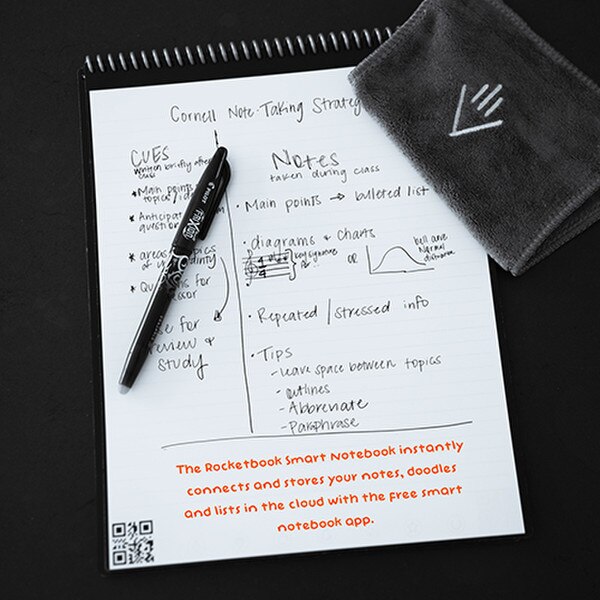 Cornell Note-Taking Strateg
CUES
written briefly after
class
* Main points
topics/id
* Anticipat
question
* areas
topics
of y
* Qu
s for
ssor
se for
view &
study
PILOT
FRIXION
Notes
taken during class
· Main points → bulleted list
· diagrams & charts
4
4
key signature
OR
bell curve
Normal
distribution
· Repeated / stressed info
· Tips
- leave space between topics
- outlines
- Abbreviate
- Paraphrase
The Rocketbook Smart Notebook instantly
connects and stores your notes, doodles
and lists in the cloud with the free smart
notebook app.